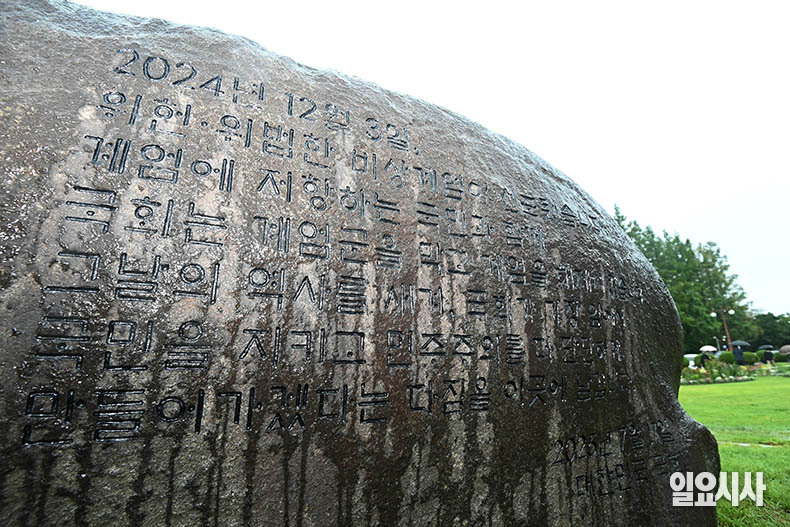 2024년 12월 3일,
위헌·위법한 비상계엄이 선포됐습니다
계엄에 저항하는 국민과 함께
국회는 계엄군을 막고 계엄을
그날의 역사를 새겨, 국회가 가장
국민을 지키고 민주주의를 더 단단하게
만들어가겠다는 다짐을 이곳에
2025년 7월
대한민국 국회
일요시사